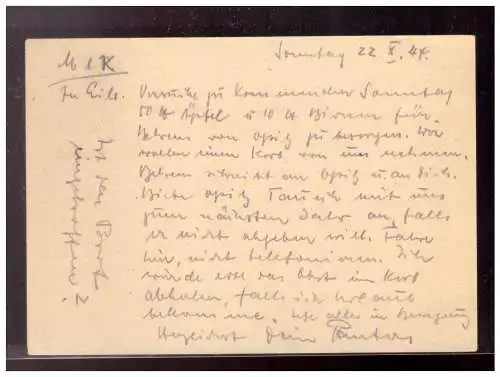 Sonntag 22 X. 44.
M. l. K
In Eile.
Versuche zu kommender Sonntag
50 tt Äpfel u 10 tt Birnen für
Behrens von Opitz zu besorgen. Wir
wollen einen Korb von uns nehmen.
Behrens schreibt an Opitz u. an dich.
Biete Opitz Tausch mit uns
zum nächsten Jahr an, falls
er nicht abgeben will. Fahre
hin, nicht telefonieren. Ich
würde evtl das Obst im Korb
abholen, falls ich Urlaub
bekomme. alles in Bewegung
Herzlichst Dein
Ist das Boot